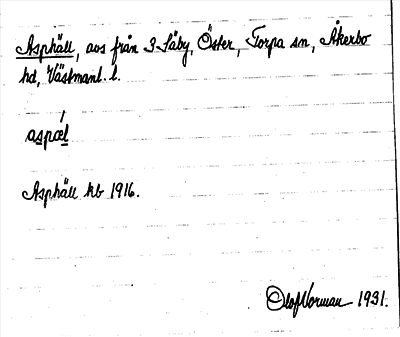 Asphäll, avs från 3 Säby, Öster, Torpa sn, Åkerbo
hd, Västmanl. l.
aspæl
Asphäll kb 1916.
Olof Norman 1931.